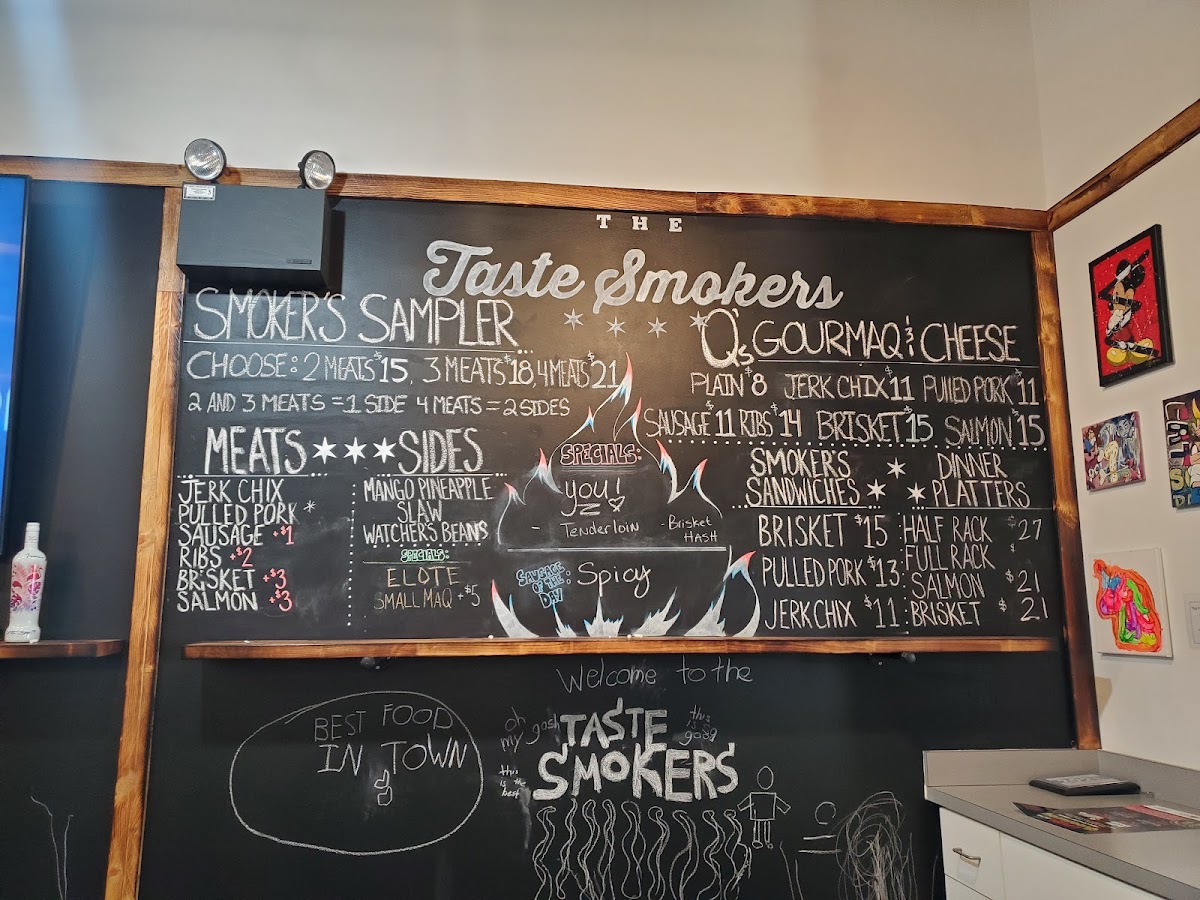 THE
Taste Smokers
SMOKER'S SAMPLER
CHOOSE: 2 MEATS $15, 3 MEATS $18, 4 MEATS $21
2 AND 3 MEATS = 1 SIDE 4 MEATS = 2 SIDES
MEATS
JERK CHIX
PULLED PORK *
SAUSAGE +$1
RIBS +$2
BRISKET +$3
SALMON +$3
SIDES
MANGO PINEAPPLE
SLAW
WATCHER'S BEANS
SPECIALS:
ELOTE
SMALL MAQ +$5
SPECIALS:
YOU!
- Tenderloin
- Brisket
HASH
SAUSAGE
OF THE
DAY:
Spicy
Q's GOURMAQ & CHEESE
PLAIN $8 JERK CHIX $11 PULLED PORK $11
SAUSAGE $11 RIBS $14 BRISKET $15 SALMON $15
SMOKER'S
SANDWICHES
BRISKET $15
PULLED PORK $13
JERK CHIX $11
DINNER
PLATTERS
HALF RACK $27
FULL RACK $
SALMON $21
BRISKET $21
Welcome to the
TASTE
SMOKERS
BEST FOOD
IN TOWN
oh
my gosh
this
is
good
this
is the
best